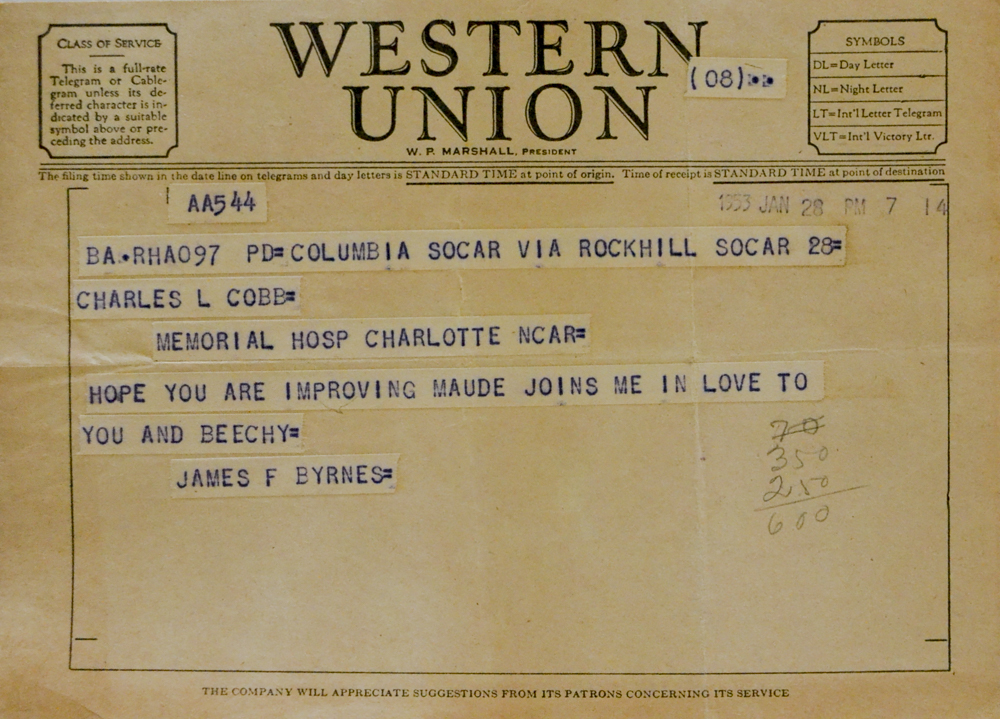 CLASS OF SERVICE
This is a full-rate
Telegram or Cable-
gram unless its de-
ferred character is in-
dicated by a suitable
symbol above or pre-
ceding the address.
WESTERN
UNION
(08)
W. P. MARSHALL, PRESIDENT
SYMBOLS
DL=Day Letter
NL=Night Letter
LT=Int'l Letter Telegram
VLT=Int'l Victory Ltr.
The filing time shown in the date line on telegrams and day letters is STANDARD TIME at point of origin. Time of receipt is STANDARD TIME at point of destination
AA544
1953 JAN 28 PM 7 14
BA.RHA097 PD=COLUMBIA SOCAR VIA ROCKHILL SOCAR 28=
CHARLES L COBB=
MEMORIAL HOSP CHARLOTTE NCAR=
HOPE YOU ARE IMPROVING MAUDE JOINS ME IN LOVE TO
YOU AND BEECHY=
JAMES F BYRNES=
70
350
250
600
THE COMPANY WILL APPRECIATE SUGGESTIONS FROM ITS PATRONS CONCERNING ITS SERVICE